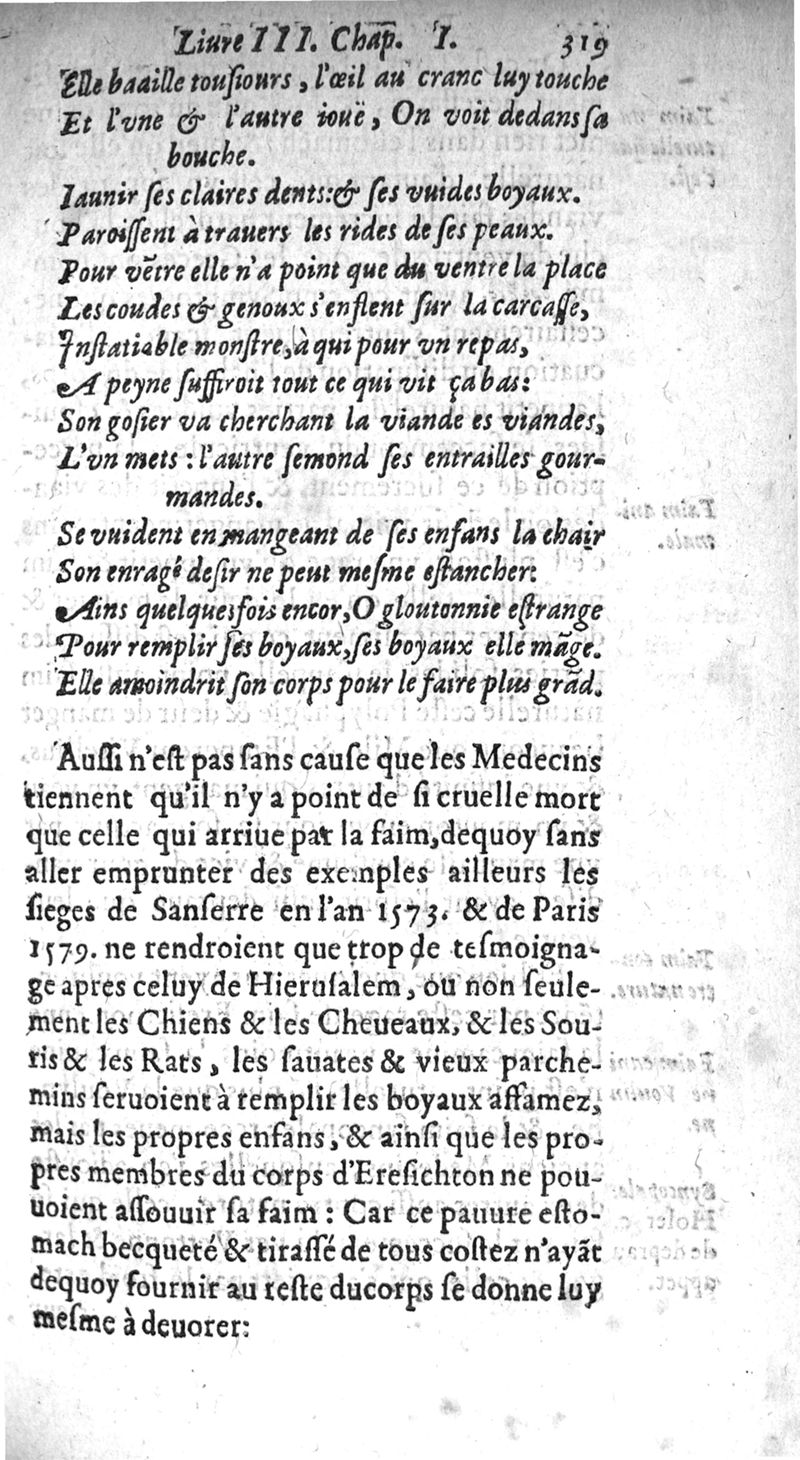 Liure III. Chap. I. 319
Elle baaille tousiours, l'œil au cranc luy touche
Et l'vne & l'autre iouë, On voit dedans sa
bouche.
Iaunir ses claires dents:& ses vuides boyaux.
Paroissent à trauers les rides de ses peaux.
Pour vẽtre elle n'a point que du ventre la place
Les coudes & genoux s'enflent sur la carcasse,
Instatiable monstre, à qui pour vn repas,
A peyne suffiroit tout ce qui vit ça bas:
Son gosier va cherchant la viande es viandes,
L'vn mets : l'autre semond ses entrailles gour-
mandes.
Se vuident en mangeant de ses enfans la chair
Son enragé desir ne peut mesme estancher:
Ains quelquesfois encor, O gloutonnie estrange
Pour remplir ses boyaux, ses boyaux elle mãge.
Elle amoindrit son corps pour le faire plus grãd.
Aussi n'est pas sans cause que les Medecins
tiennent qu'il n'y a point de si cruelle mort
que celle qui arriue par la faim, dequoy sans
aller emprunter des exemples ailleurs les
sieges de Sanserre en l'an 1573. & de Paris
1579. ne rendroient que trop de tesmoigna-
ge apres celuy de Hierusalem, ou non seule-
ment les Chiens & les Cheueaux, & les Sou-
ris & les Rats, les sauates & vieux parche-
mins seruoient à remplir les boyaux affamez,
mais les propres enfans, & ainsi que les pro-
pres membres du corps d'Eresichton ne pou-
uoient assouuir sa faim : Car ce pauure esto-
mach becqueté & tirassé de tous costez n'ayãt
dequoy fournir au reste ducorps se donne luy
mesme à deuorer: